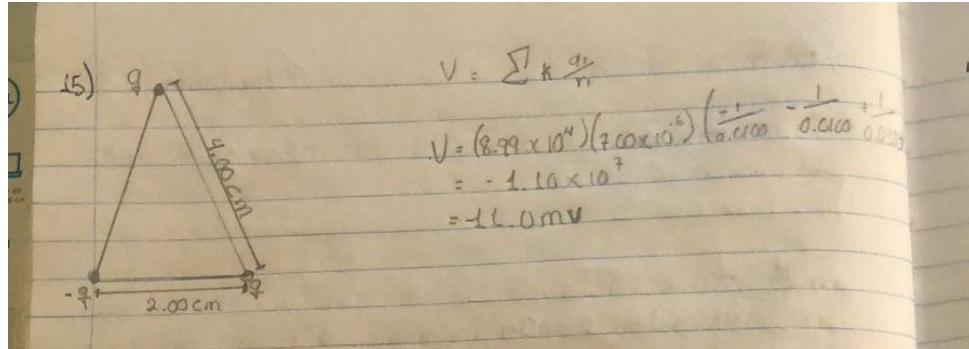 15)
q
4.00cm
-q
2.00cm
q
V = Σ k qi/ri
V = (8.99 x 10⁴)(7.00x10⁻⁶)(-1/0.0100 - 1/0.0100 + 1/
= - 1.10 x 10⁷
= -11.0 mV